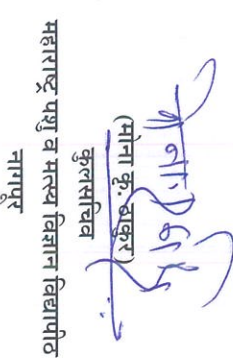 (मोना कृ. ठाकुर)
कुलसचिव
महाराष्ट्र पशु व मत्स्य विज्ञान विद्यापीठ
नागपुर